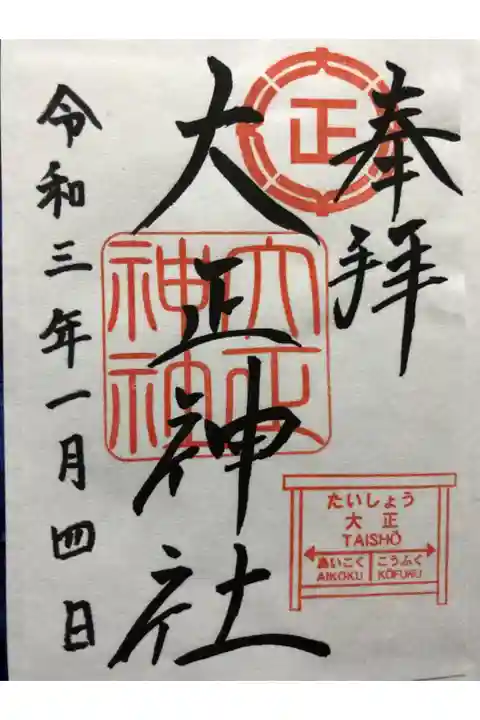 奉拝
正
大正神社
大正
神社
たいしょう
大正
TAISHŌ
あいこく こうふく
AIKOKU KŌFUKU
令和三年一月四日